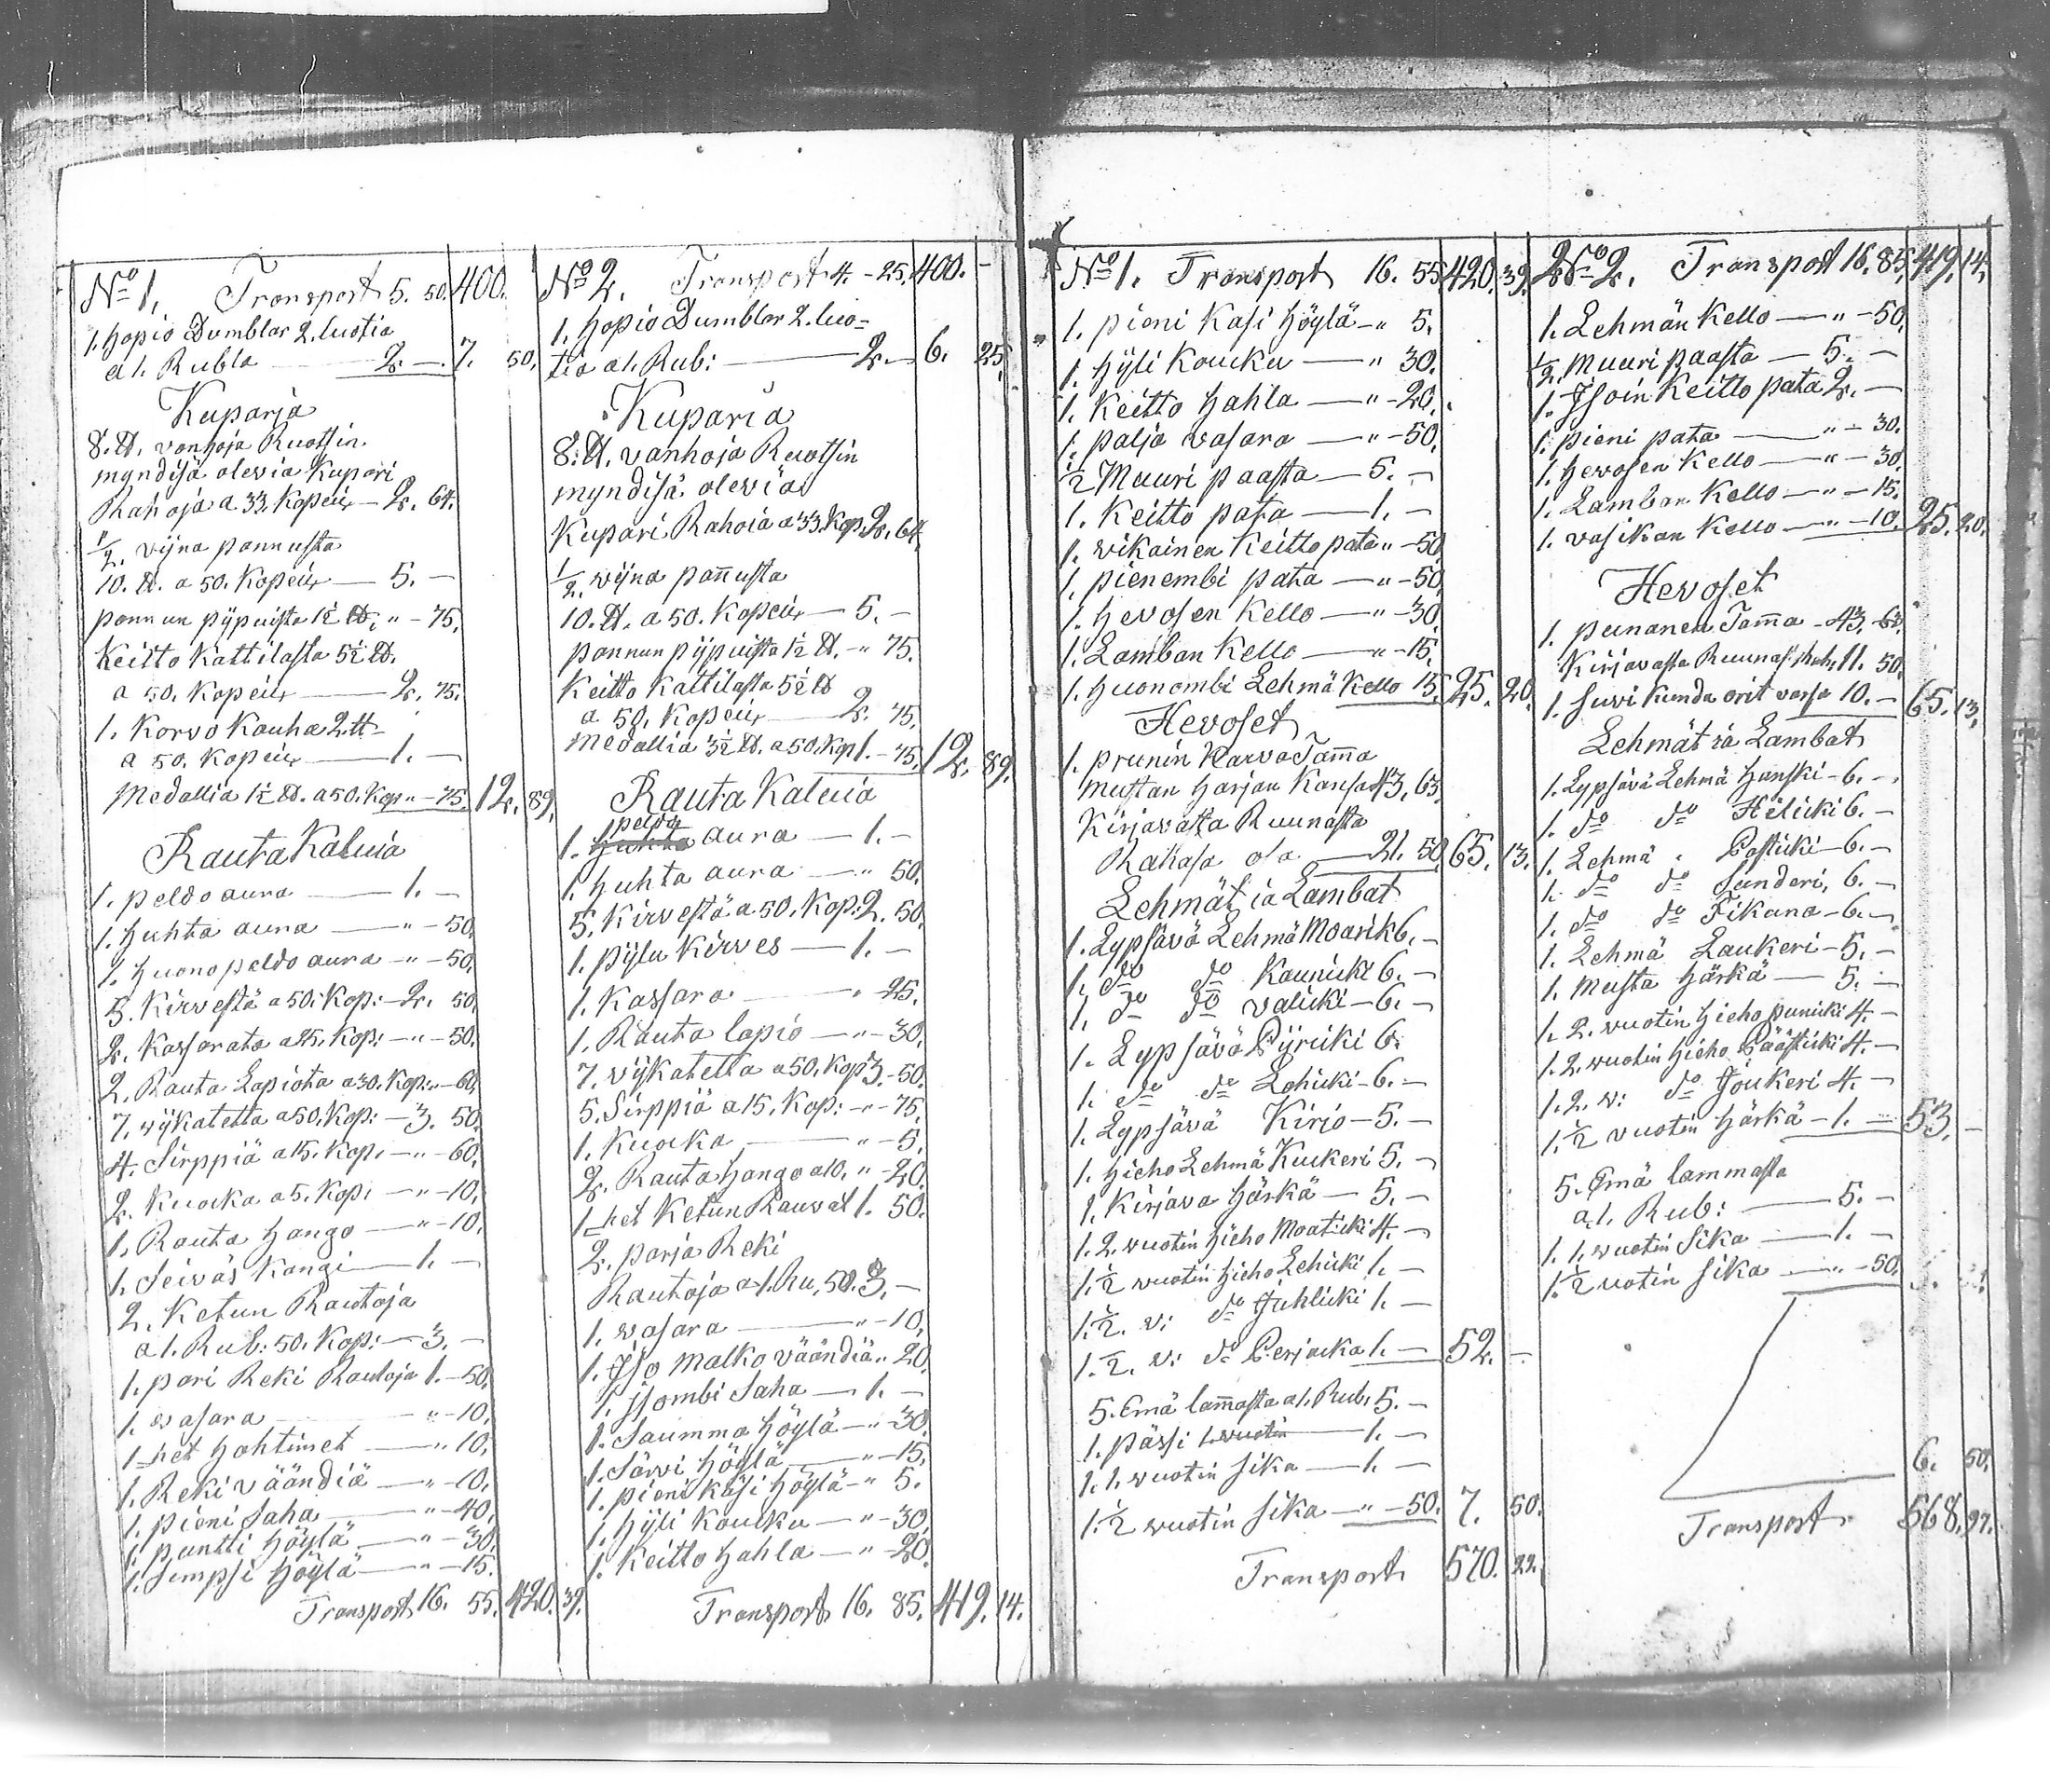 No 1. Transport 5. 50. 400.
1. Hopio Dumblar 2. luotia
a 1. Rubla — 2. — 7. 50.
Kuparja
8. ℔. vanhoja Ruotsin
myndisä olevia Kupari
Rahoja a 33. Kopeix — 2. 64.
1/2. vijna pannusta
10. ℔. a 50. Kopeix — 5. —
pannun pÿpuista 1½ ℔. " — 75.
Keitto Kattilasta 5½ ℔.
a 50. Kopeix — 2. 75.
1. Korvo Kauha 2. ℔
a 50. Kopeix — 1. —
Medallia 1½ ℔. a 50. Kop " — 75. 12. 89.
Rauta Kaluia
1. peldo aura — 1. —
1. Huhta aura — " — 50.
1. Huono peldo aura — " — 50.
5. Kirvestä a 50. Kop: — 2. 50.
2. Kassarata a 25. Kop: — " — 50.
2. Rauta Lapiota a 30. Kop: " — 60.
7. vÿkatetta a 50. Kop: — 3. 50.
4. Sirppiä a 15. Kop. — " — 60.
2. Kuocka a 5. Kop. — " — 10.
1. Rauta Hango — " — 10.
1. Seiväs Kangi — 1. —
2. Ketun Rautoja
a 1. Rub: 50. Kop: — 3. —
1. pari Reki Rautoja 1. — 50.
1. vasara " — 10.
1_het Hohtimet — " 10.
1. Reki väändiä — " — 10.
1. pieni Saha — " — 40.
1. puntti Höylä — " — 30.
1. Simpsi Höylä — " — 15.
Transport 16. 55. 420. 39.
No 2. Transport 4. — 25. 400. —
1. Hopio Dumblar 2. luo=
tia a 1. Rub: — 2. — 6. 25.
Kuparia
8. ℔. vanhoja Ruotsin
myndisä olevia
Kupari Rahoia a 33. Kop. 2. 64.
1/2. vijna pannusta
10. ℔. a 50. Kopeix — 5. —
pannun pÿpuista 1½ ℔. — " 75.
Keitto Kattilasta 5½ ℔
a 50. Kopeix — 2. 75.
Medallia 3½ ℔. a 50. Kop 1. — 75. 12. 89.
Rauta Kaluia
peldo
1. Huhta aura — 1. —
1. Huhta aura — " 50.
5. Kirvestä a 50. Kop: 2. 50.
1. pÿlu Kirves — 1. —
1. Kassara — " 25.
1. Rauta lapio — " — 30.
7. vÿkatetta a 50. Kop 3. — 50.
5. Sirppiä a 15. Kop: — " — 75.
1. Kuocka — " — 5.
2. Rauta Hango a 10. " — 20.
1_het Ketun Rauvat 1. 50.
2. parja Reki
Rautoja a 1. Ru, 50. 3. —
1. vasara — " — 10.
1. Iso Malko väändiä " 20.
1. isombi Saha — 1. —
1. Saumma Höylä — " — 30.
1. Särvi Höylä — " — 15.
1. pieni Käsi Höylä — " 5.
1. Hÿli Koucku — " — 30.
1. Keitto Hahla — " — 20.
Transport 16. 85. 419. 14.
No 1. Transport 16. 55 420. 39.
1. pieni Kasi Höylä — " 5.
1. Hÿli Koucku — " 30.
1. Keitto Hahla — " — 20.
1. palja vasara — " — 50.
1/2 Muuri paasta — 5. —
1. Keitto pata — 1. —
1. vikainen Keitto pata " — 50
1. pienembi pata — " — 50
1. Hevosen Kello — " — 30
1. Lamban Kello — " — 15.
1. Huonombi Lehmä Kello 15. 25. 20.
Hevoset
1. prunin Karva Tam̄a
Mustan Harjan Kansa 43. 63.
Kirjavasta Ruunasta
Rahasa osa — 21. 50 65. 13.
Lehmät ia Lambat
1. Lypsävä Lehmä Moarik 6. —
1. do do Kaunicki 6. —
1. do do Valicki — 6. —
1. Lypsävä Pÿricki 6.
1. do do Lohicki — 6. —
1. Lypsävä Kirjo — 5. —
1. Hieho Lehmä Kuckeri 5. —
1. Kirjava Härkä — 5. —
1. 2. vuotin Hieho Moaticki 4. —
1. ½ vuotin Hieho Lehicki 1. —
1. ½. v: do Juhlicki 1. —
1. ½. v: do Perjacka 1. — 52. —
5. Emä lam̄asta a 1. Rub. 5. —
1. pässi 1. vuotin — 1. —
1. 1. vuotin Sika — 1. —
1. ½ vuotin Sika — " — 50. 7. 50.
Transport 570. 22.
No 2. Transport 16. 85. 419. 14.
1. Lehmän Kello — " — 50.
1/2. Muuri paasta — 5. —
1. Isoin Keitto pata 2. —
1. pieni pata — " — 30.
1. Hevosen Kello — " — 30.
1. Lamban Kello — " — 15.
1. vasikan Kello — " — 10. 25. 20.
Hevoset
1. punanen Tam̄a — 43. 63.
Kirjavasta Ruunas. Rah. 11. 50.
1. Suvikunda orit varsa 10. — 65. 13.
Lehmät ia Lambat
1. Lypsävä Lehmä Hanski — 6. —
1. do do Hélicki 6. —
1. Lehmä Posticki — 6. —
1. do do Sunderi, 6. —
1. do do Fikana — 6. —
1. Lehmä Laukeri — 5. —
1. Musta Härkä — 5. —
1. 2. vuotin Hieho punicki 4. —
1. 2. vuotin Hieho Päästicki 4. —
1. 2. v: do Joukeri 4. —
1. ½ vuotin Härkä — 1. — 53. —
5. Emä lammasta
a 1. Rub: — 5. —
1. 1. vuotin Sika — 1. —
1. ½ vuotin Sika — " — 50.
6. 50.
Transport 568. 97.